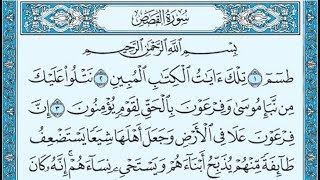 سُورَةُ القَصَصِ
بِسْمِ ٱللَّهِ ٱلرَّحْمَٰنِ ٱلرَّحِيمِ
طسٓمٓ ١ تِلْكَ ءَايَٰتُ ٱلْكِتَٰبِ ٱلْمُبِينِ ٢ نَتْلُوا۟ عَلَيْكَ
مِن نَّبَإِ مُوسَىٰ وَفِرْعَوْنَ بِٱلْحَقِّ لِقَوْمٍ يُؤْمِنُونَ ٣ إِنَّ
فِرْعَوْنَ عَلَا فِى ٱلْأَرْضِ وَجَعَلَ أَهْلَهَا شِيَعًا يَسْتَضْعِفُ
طَآئِفَةً مِّنْهُمْ يُذَبِّحُ أَبْنَآءَهُمْ وَيَسْتَحْىِۦ نِسَآءَهُمْ إِنَّهُۥ كَانَ